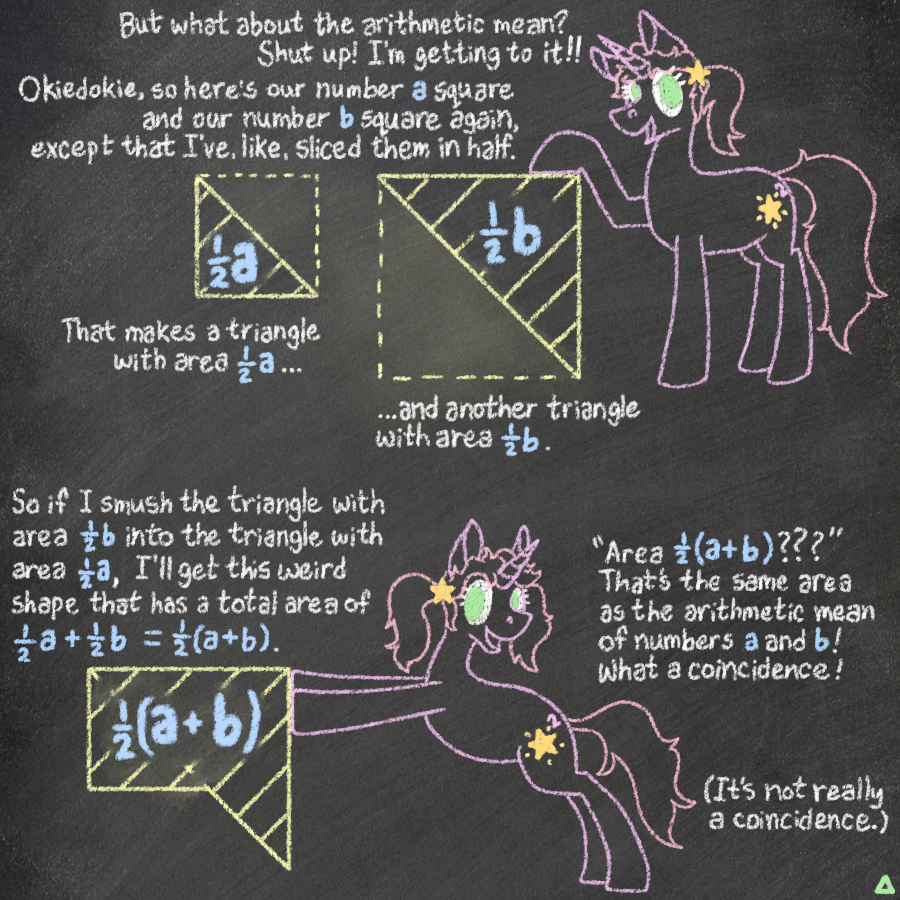 But what about the arithmetic mean?
Shut up! I'm getting to it!!
Okiedokie, so here's our number a square
and our number b square again,
except that I've, like, sliced them in half.
½a
½b
That makes a triangle
with area ½a...
...and another triangle
with area ½b.
So if I smush the triangle with
area ½b into the triangle with
area ½a, I'll get this weird
shape that has a total area of
½a + ½b = ½(a+b).
½(a+b)
"Area ½(a+b)???"
That's the same area
as the arithmetic mean
of numbers a and b!
What a coincidence!
(It's not really
a coincidence.)